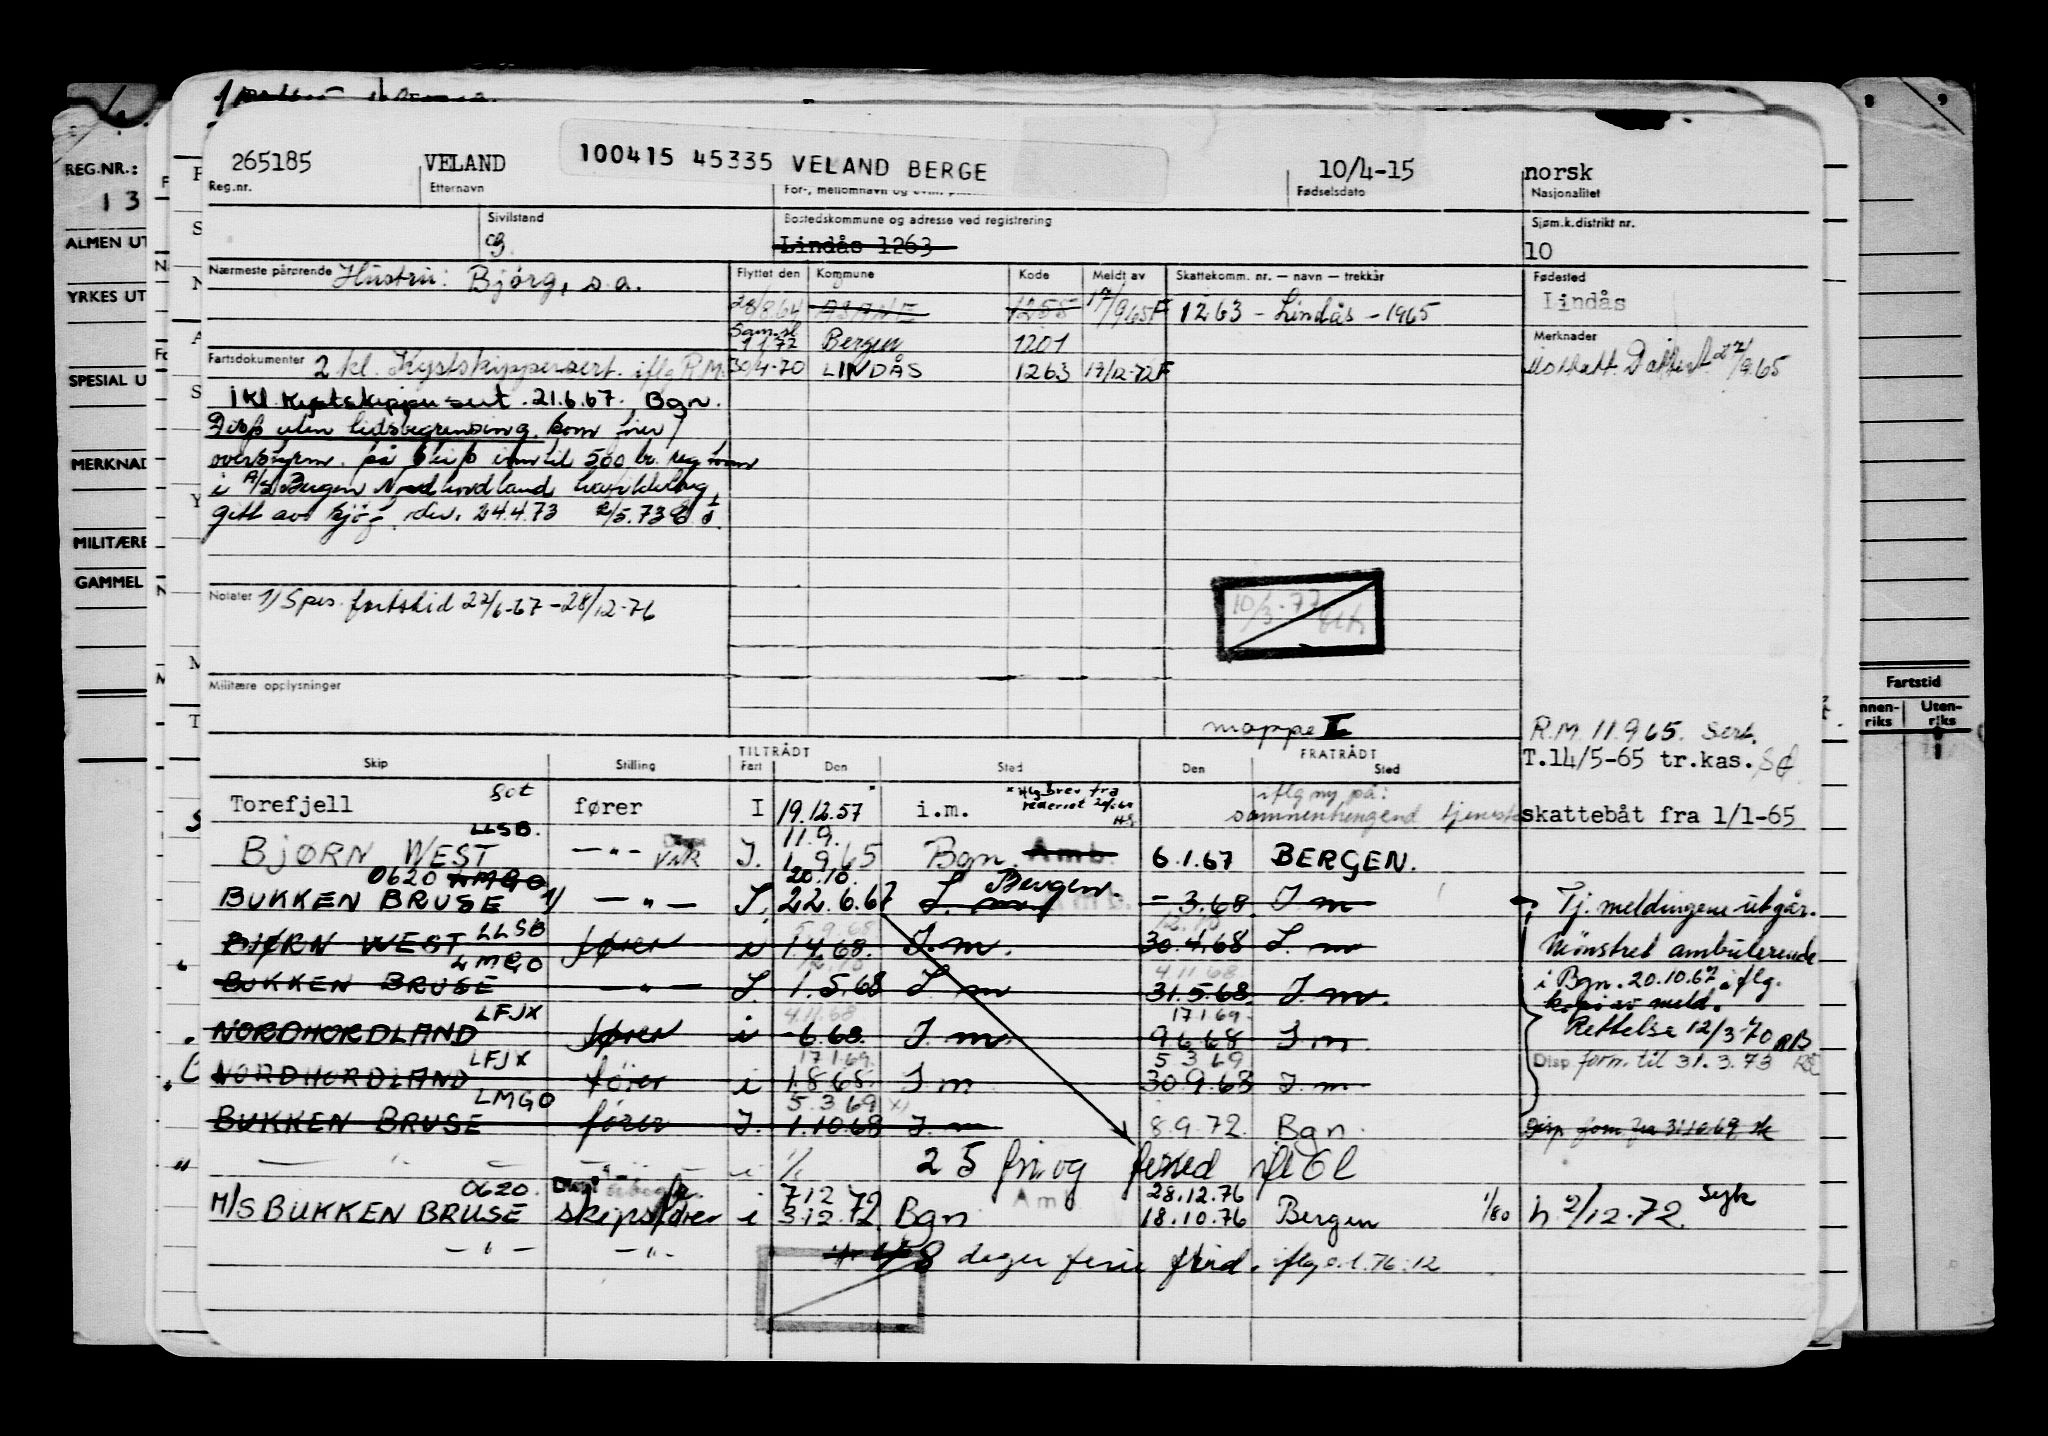 265185 VELAND 100415 45335 VELAND BERGE 10/4-15 norsk
Reg.nr. Etternavn Fødselsdato Nasjonalitet
Sivilstand Bostedskommune og adresse ved registrering Sjøm.k.distrikt nr.
g. Lindås 1263 10
Nærmeste pårørende Hustru: Bjørg, s.a. Flyttet den Kommune Kode Meldt av Skattekomm. nr. — navn — trekkår Fødested
28/8.64 ASANE 1255 17/9.65 F 1263 - Lindås - 1965 Lindås
Sam.sl. 1/1 72 Bergen 1201 Merknader
Fartsdokumenter 2 kl. Kystskippersert. iflg R.M. 30/4-70 LINDÅS 1263 17/12-72 F
1 kl. Kystskippersert. 21.6.67. Bgn.
Disp uten tidsbegrensning som fører/
overstyrm. på skip inntil 500 br. reg. tonn
i A/S Bergen Nordhordland
gitt av Sjø. div. 24.4.73 2/5.73
Notater 1/ Spes. fartstid 22/6-67 - 28/12-76
10/3-77
Militære opplysninger
mappe I
R.M. 11.9.65. Sert.
T.14/5-65 tr.kas.
Skip Stilling TILTRÅDT Fart Den Sted FRATRÅDT Den Sted
Torefjell fører I 19.12.57 i.m. iflg ny på: sammenhengend tjeneste skattebåt fra 1/1-65
iflg brev fra rederiet
LLSB.
BJØRN WEST — " — I. 11.9. 1.9.65 Bgn. Amb. 6.1.67 BERGEN.
0620 LMGO 20.10. Bergen.
BUKKEN BRUSE 1/ — " — I. 22.6.67 I. m — 3.68 I. m Tj. meldingene utgår.
LLSB 5.9.68 12.10
BJØRN WEST fører i 1.4.68. I. m. 30.4.68 I. m Mønstret ambulerende
LMGO 12.10 4.11.68
BUKKEN BRUSE — " — I. 1.5.68 I. m 31.5.68. I. m. i Bgn. 20.10.67 iflg. kopi av meld.
LFJX 4.11.68. 17.1.69.
NORDHORDLAND fører i -6.68. I. m. 9.6.68 I m. Rettelse 12/3-70 RB
LFJX 17.1.69. 5.3.69
NORDHORDLAND fører i 1.8.68. I. m 30.9.68 I. m Disp. forn. til 31.3.73
LMGO 5.3.69
BUKKEN BRUSE fører I. 1.10.68 I. m 8.9.72. Bgn. Disp fom fra 31.10.69
25 fri og
0620. 7.12 Amb 28.12.76
M/S BUKKEN BRUSE skipsfører i 3.12.72 Bgn 18.10.76 Bergen 1/80 h. 2/12-72. Syk
— " — — " — 8 dager ferie iflg
REG.NR.:
1 3
ALMEN UT
YRKES UT
SPESIAL U
MERKNAD
MILITÆRE
GAMMEL
Fartstid
Innen-riks Uten-riks